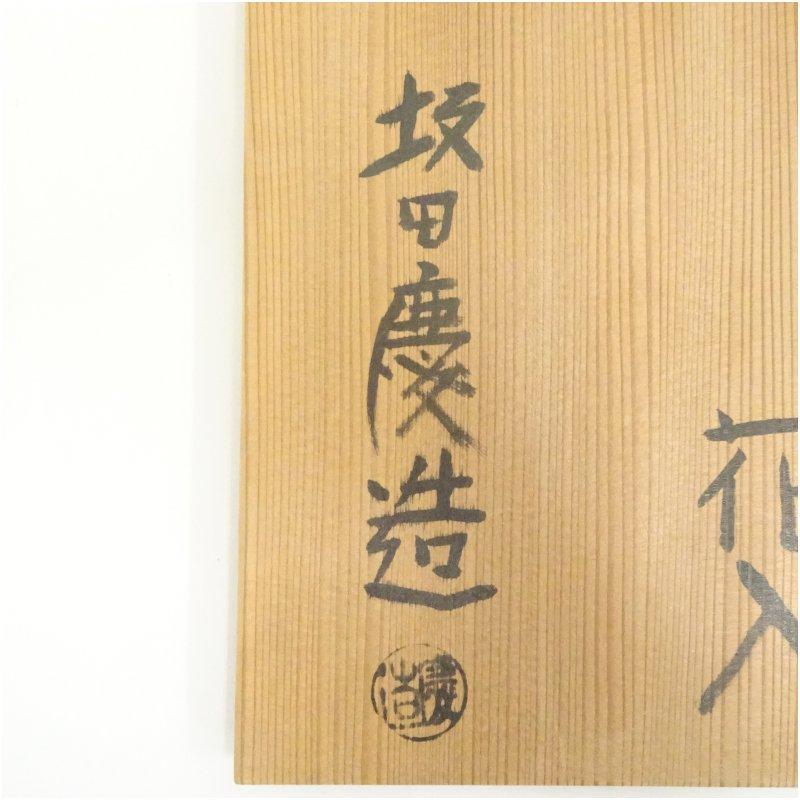 花入
坂田慶造
慶造